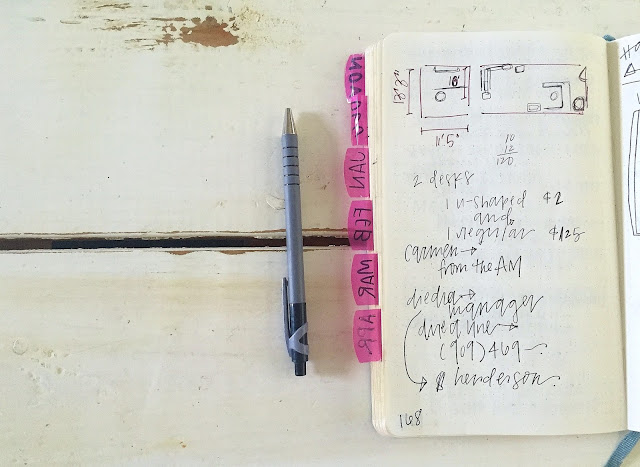 NOV DEC
JAN
FEB
MAR
APR
16'
11'5"
10
12
120
2 desks
1 u-shaped $2
and
1 regular $125
carmen →
from the AM
manager
(909) 469 -
henderson
168